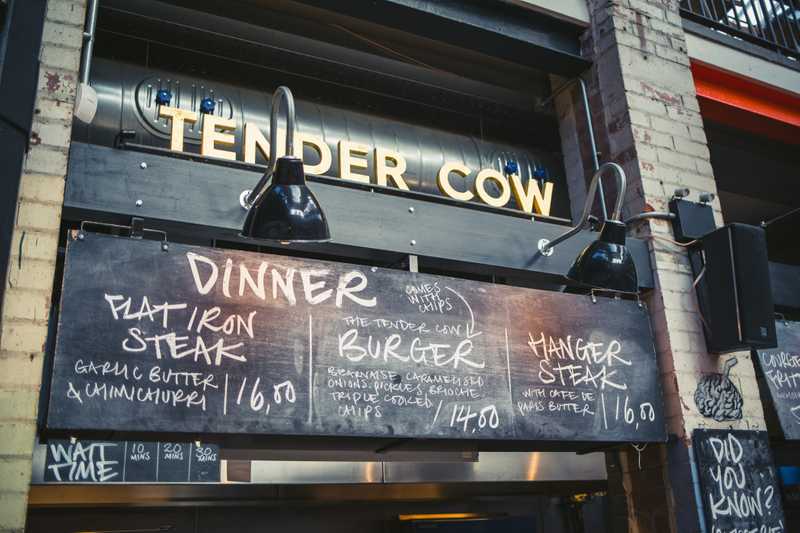 TENDER COW
DINNER
FLAT IRON
STEAK
GARLIC BUTTER
& CHIMICHURRI
16,00
COMES
WITH
CHIPS
THE TENDER COW
BURGER
BEARNAISE CARAMELISED
ONIONS, PICKLES, BRIOCHE,
TRIPLE COOKED
CHIPS
14,00
HANGER
STEAK
WITH CAFE DE
PARIS BUTTER
16,00
WAIT
TIME
10
MINS
20
MINS
30
MINS
DID
YOU
KNOW?